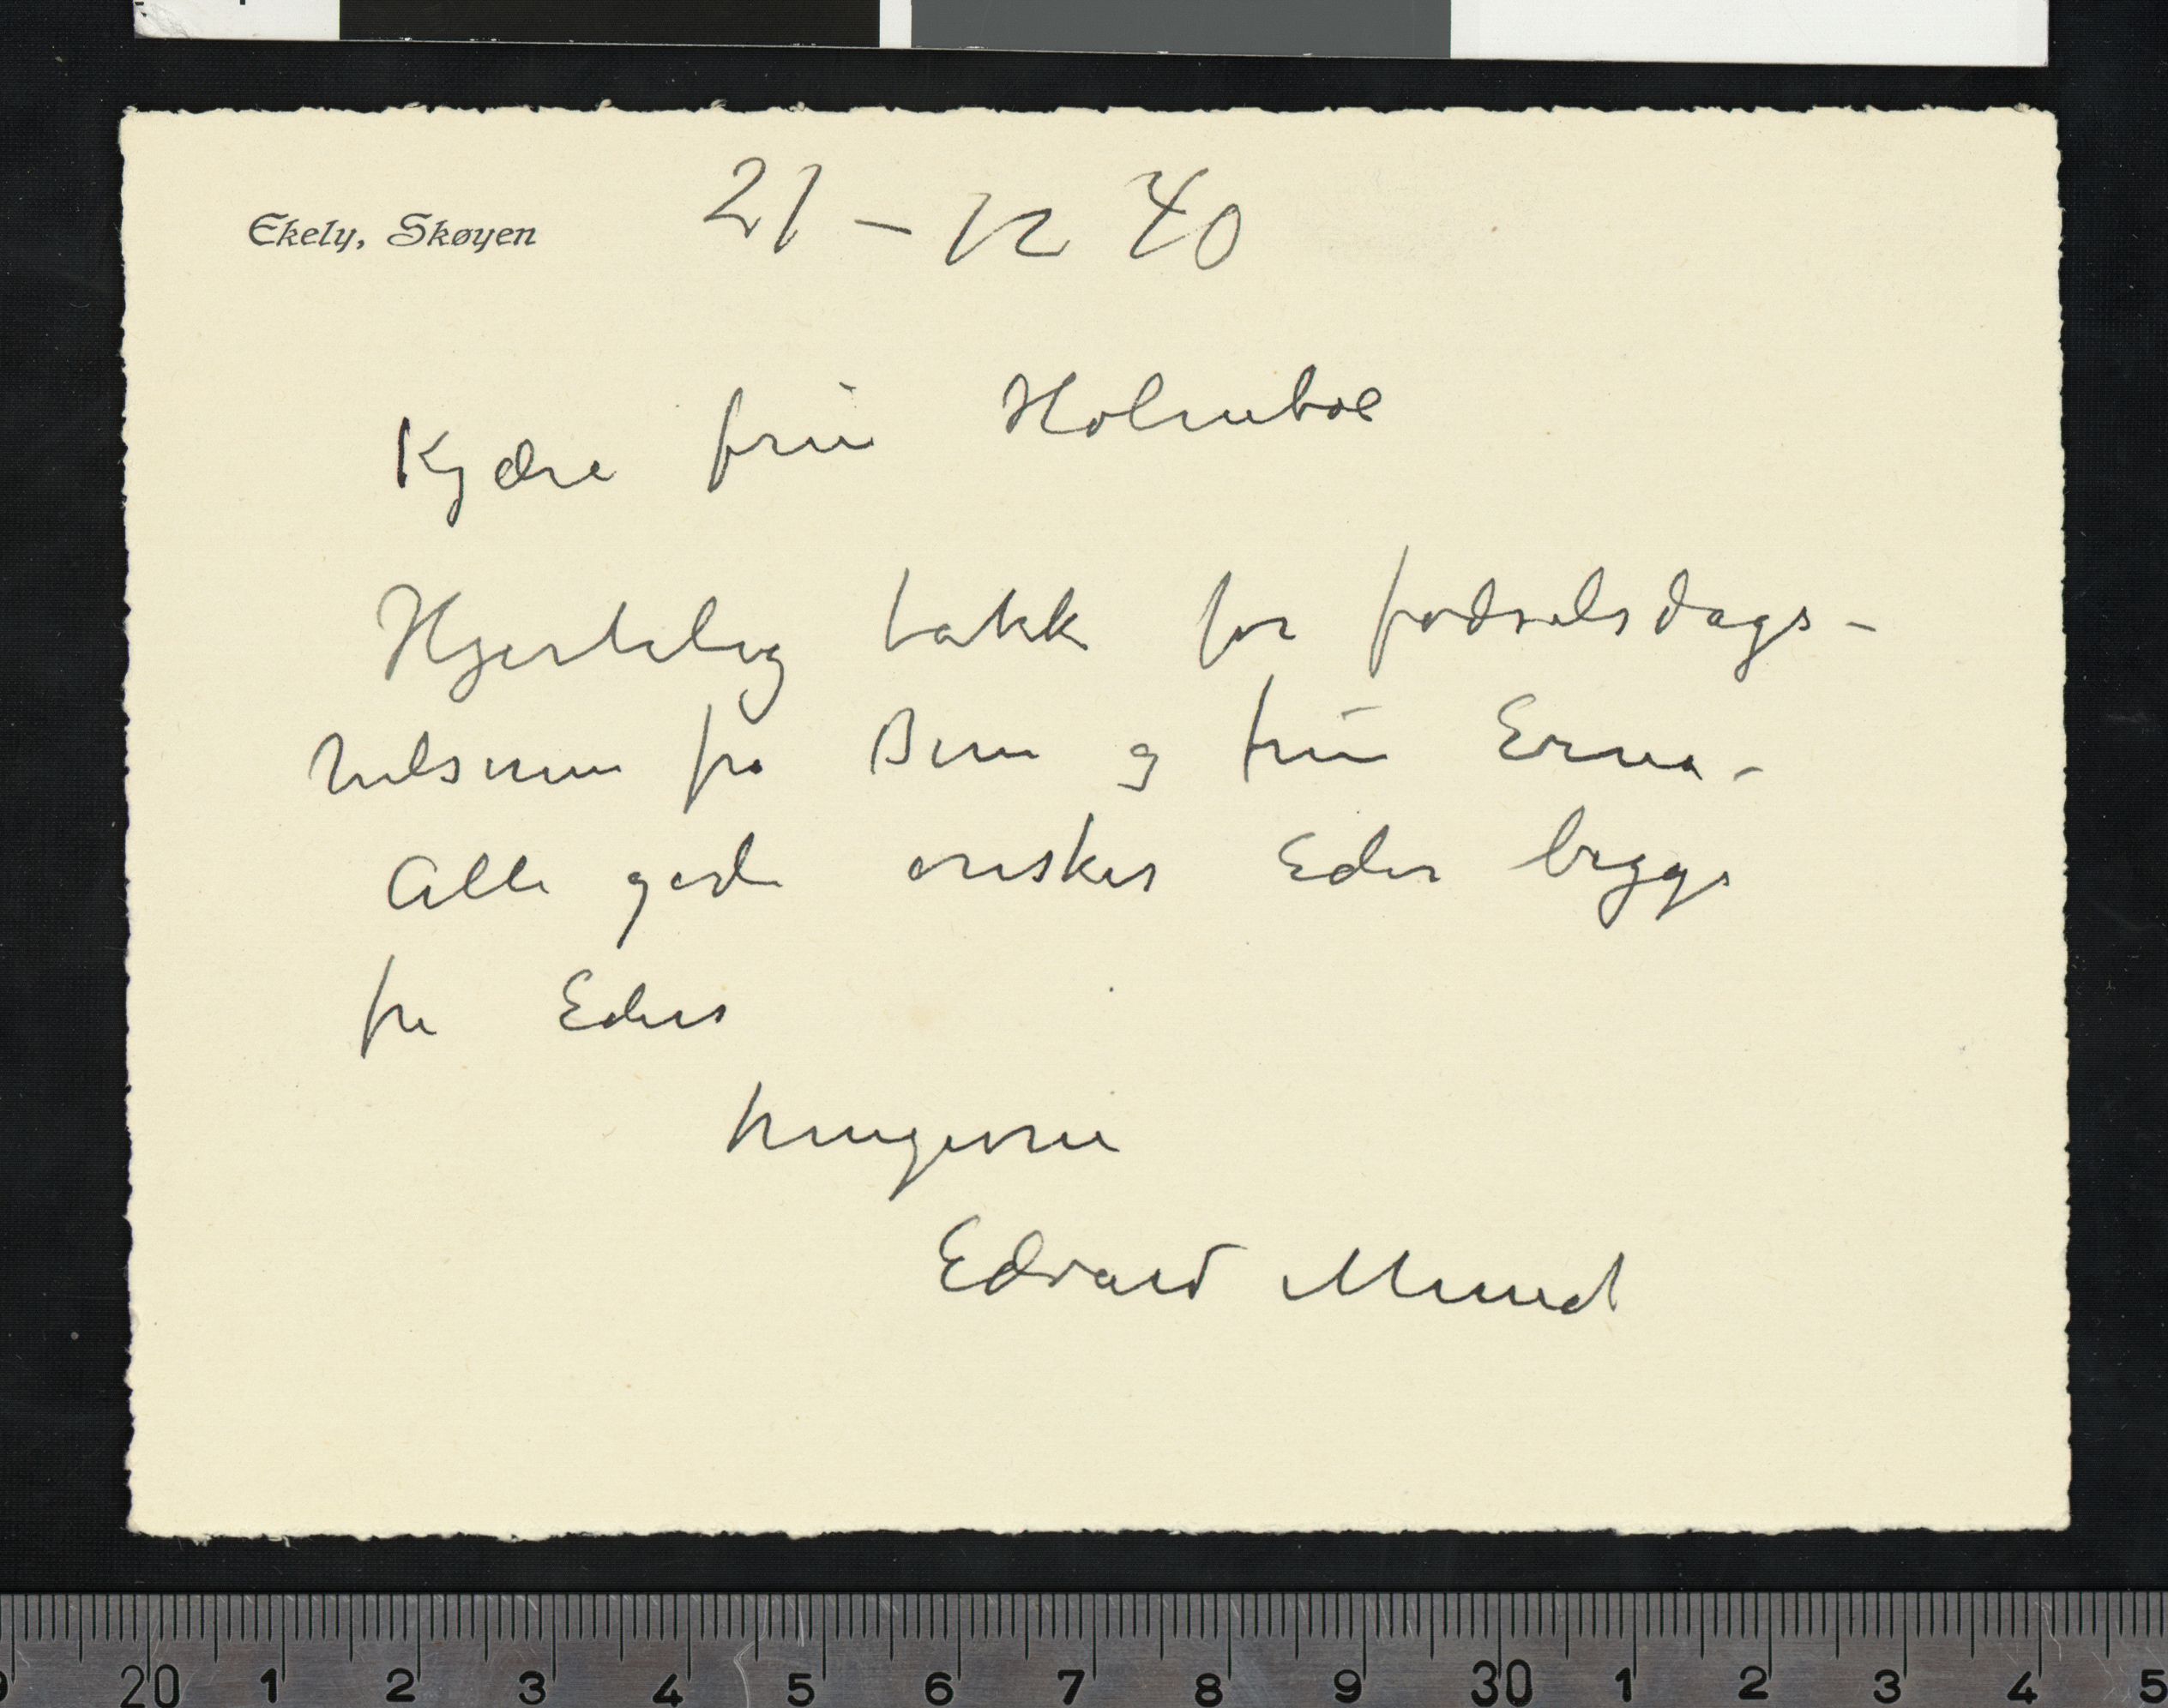 Ekely, Skøyen 21 – 12 40
Kjære frue Holmboe
Hjertelig takk for fødselsdags-
hilsenen fra Dem og frue Erna –
Alle gode ønsker Eder begge
fra Eders
hengivne
Edvard Munch
20 1 2 3 4 5 6 7 8 9 30 1 2 3 4 5